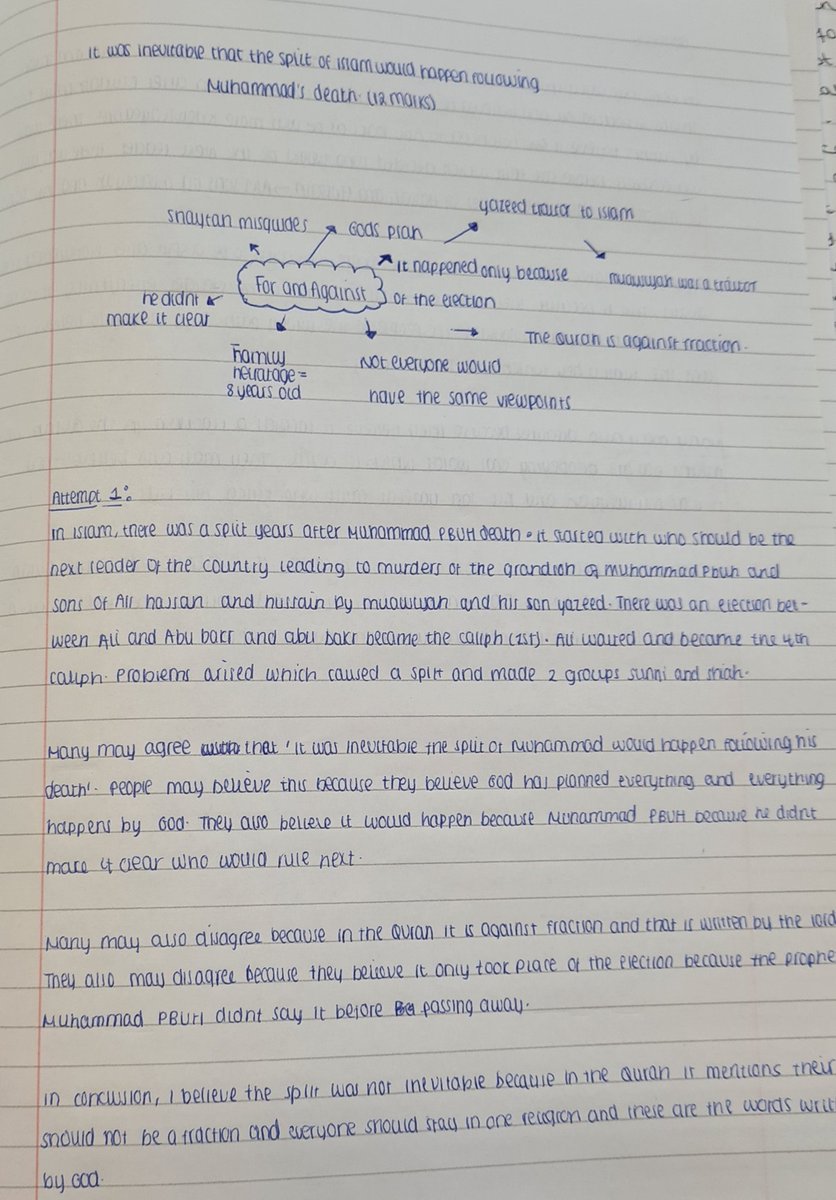 It was inevitable that the split of Islam would happen following
Muhammad's death. (12 marks)
Shaytan misguides
Gods plan
yazeed traitor to Islam
he didnt
make it clear
For and Against
It happened only because
of the election
muawiyah was a traitor
Family
heirarage =
8 years old
Not everyone would
have the same viewpoints
The Quran is against fraction.
Attempt 1:
In Islam, there was a split years after Muhammad PBUH death. It started with who should be the
next leader of the country leading to murders of the grandson of muhammad Pbuh and
sons of Ali hassan and hussain by muawiyah and his son yazeed. There was an election bet-
ween Ali and Abu bakr and abu bakr became the caliph (1st). Ali waited and became the 4th
caliph. Problems arised which caused a split and made 2 groups sunni and shiah.
Many may agree that 'it was inevitable the split of Muhammad would happen following his
death'. People may believe this because they believe God has planned everything and everything
happens by God. They also believe it would happen because Muhammad PBUH because he didnt
make it clear who would rule next.
Many may also disagree because in the Quran it is against fraction and that is written by the lord
They also may disagree because they believe it only took place of the election because the prophe
Muhammad PBUH didnt say it before passing away.
In conclusion, I believe the split was not inevitable because in the Quran it mentions their
should not be a fraction and everyone should stay in one religion and these are the words writ
by God.